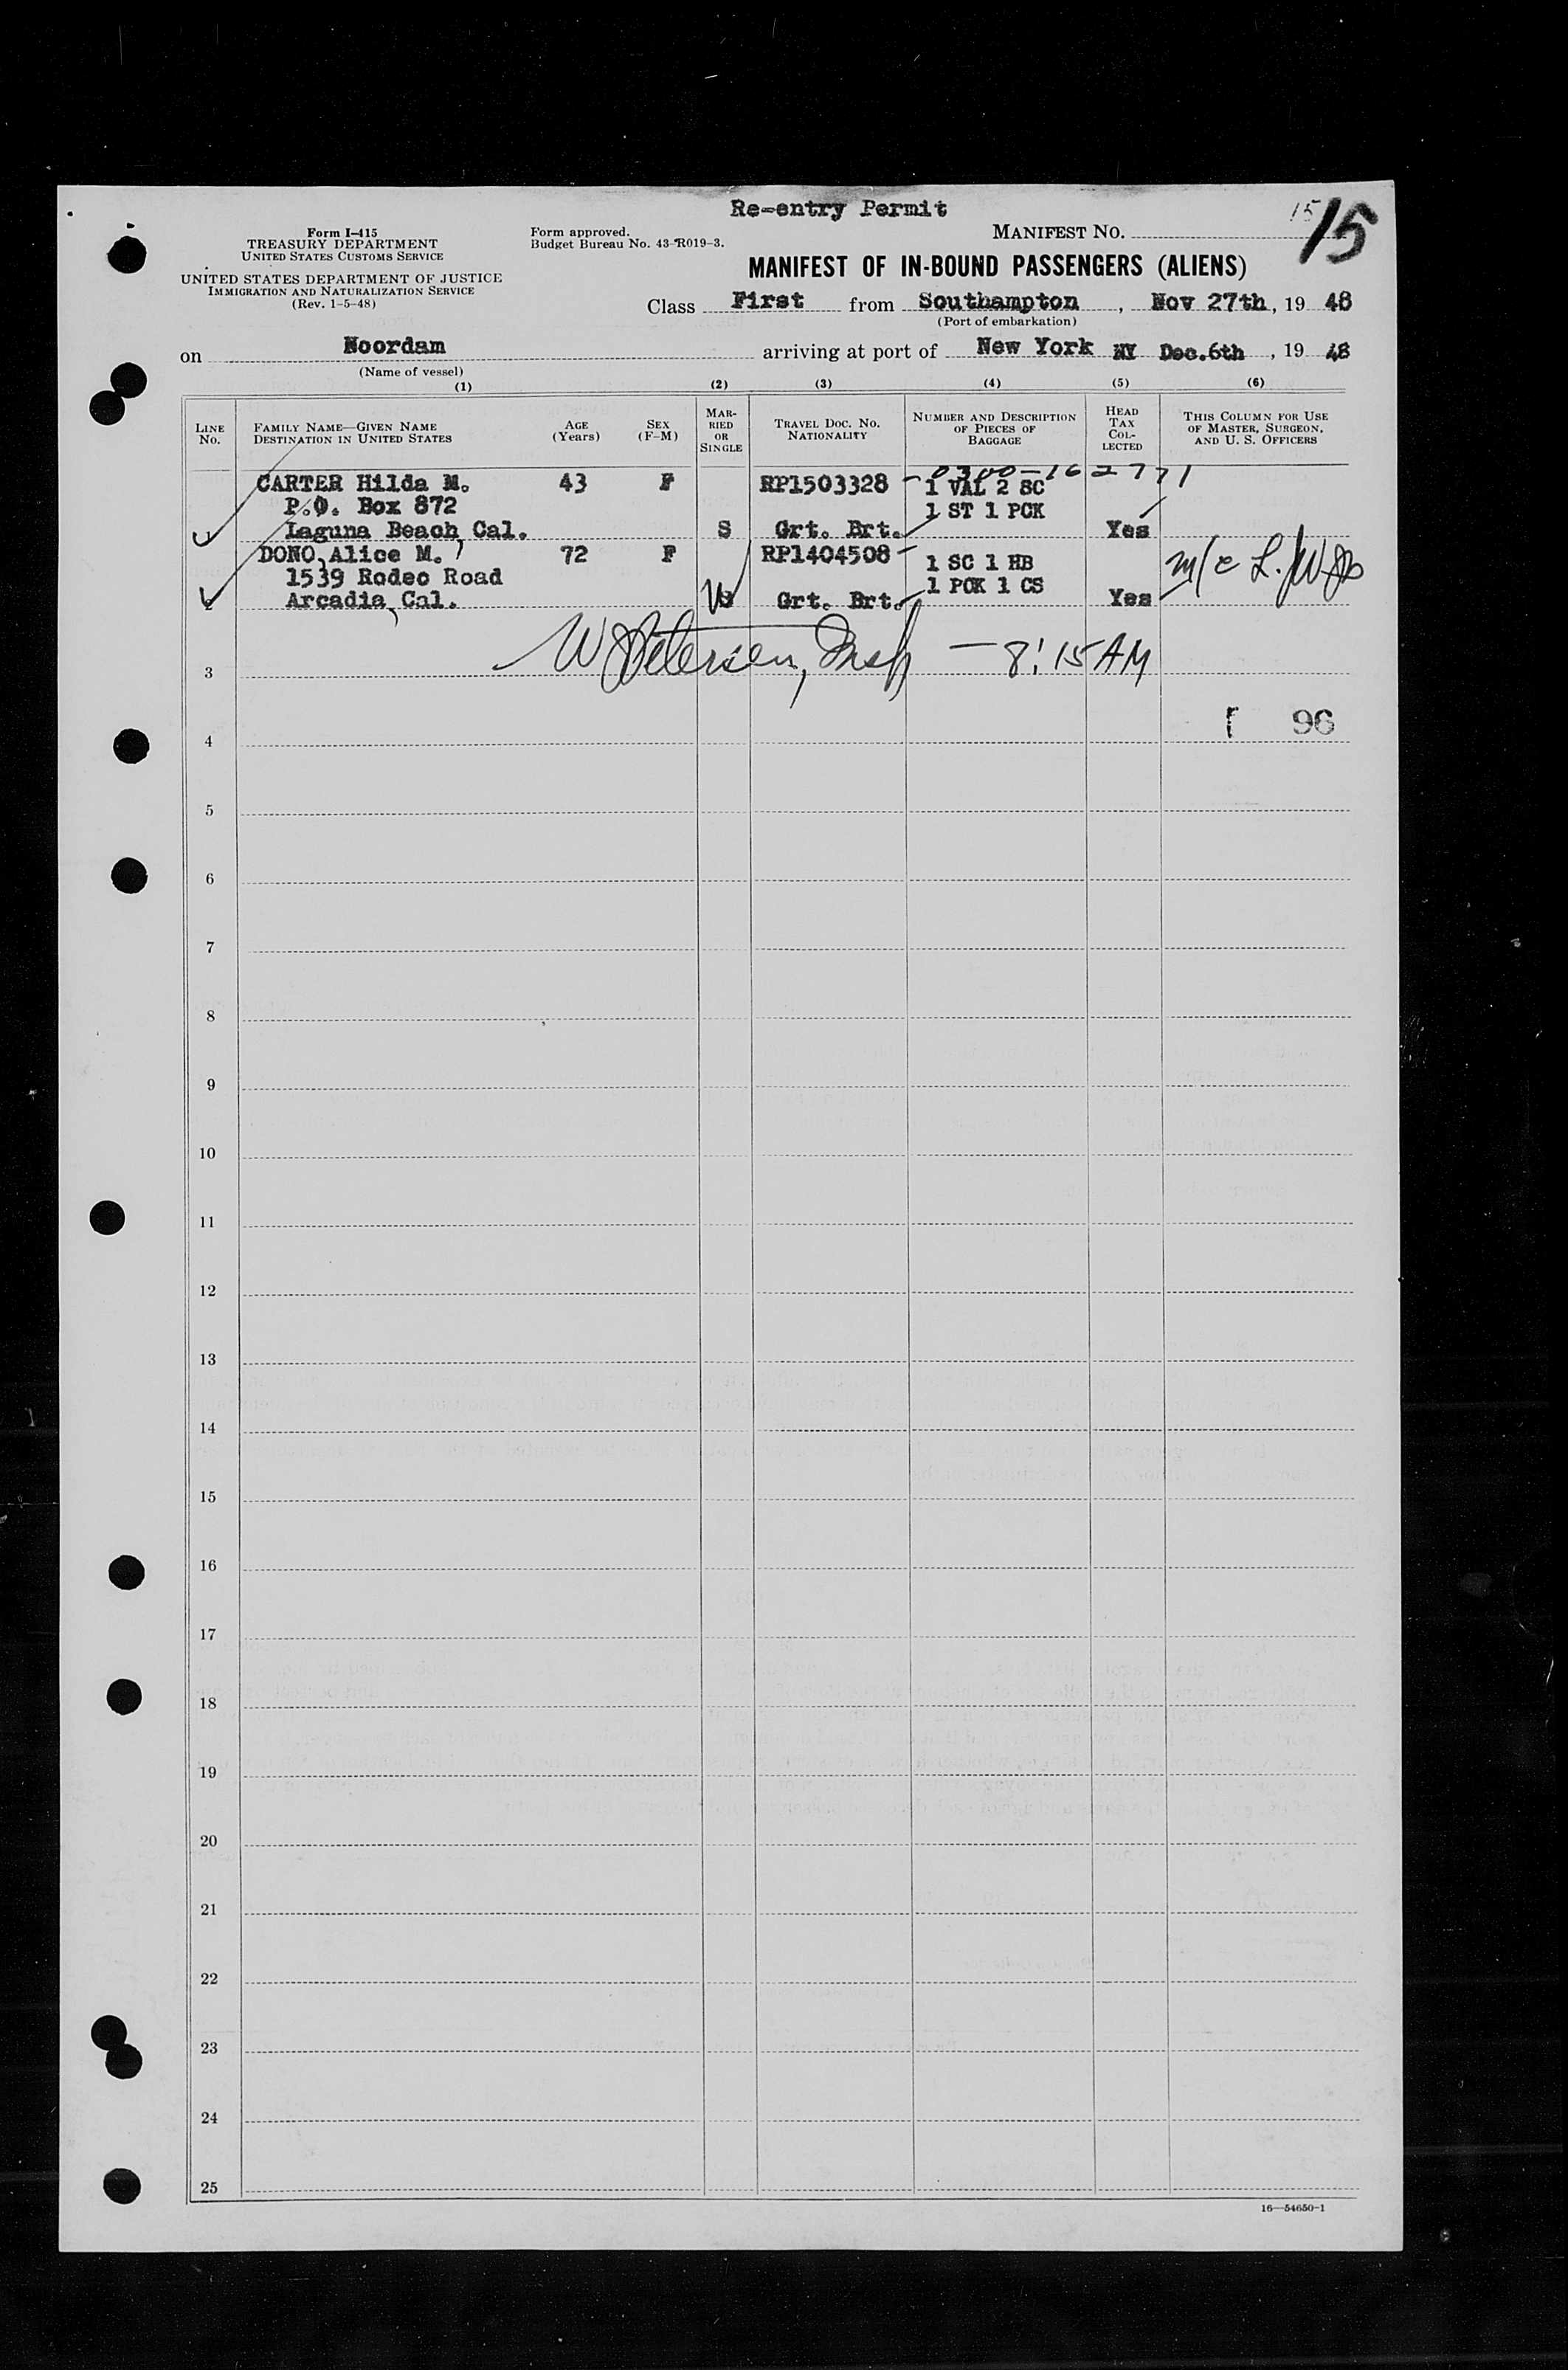 Re-entry Permit
Form I-415
TREASURY DEPARTMENT
UNITED STATES CUSTOMS SERVICE
UNITED STATES DEPARTMENT OF JUSTICE
IMMIGRATION AND NATURALIZATION SERVICE
(Rev. 1-5-48)
Form approved.
Budget Bureau No. 43-R019-3.
MANIFEST NO. 15 15
MANIFEST OF IN-BOUND PASSENGERS (ALIENS)
Class First from Southampton, Nov 27th, 19 48
(Port of embarkation)
on Noordam arriving at port of New York NY Dec.6th, 19 48
(Name of vessel)
(1) (2) (3) (4) (5) (6)
LINE No.
FAMILY NAME—GIVEN NAME
DESTINATION IN UNITED STATES
AGE (Years)
SEX (F-M)
MARRIED OR SINGLE
TRAVEL DOC. NO. NATIONALITY
NUMBER AND DESCRIPTION OF PIECES OF BAGGAGE
HEAD TAX COLLECTED
THIS COLUMN FOR USE OF MASTER, SURGEON, AND U. S. OFFICERS
0300-162771
CARTER Hilda M. 43 F RP1503328 1 VAL 2 SC
P.O. Box 872 1 ST 1 PCK
Laguna Beach, Cal. S Grt. Brt. Yes
DONO, Alice M. 72 F RP1404508 1 SC 1 HB
1539 Rodeo Road 1 PCK 1 CS
Arcadia, Cal. Grt. Brt. Yes
W Petersen, Insp — 8:15 AM
3
96
4
5
6
7
8
9
10
11
12
13
14
15
16
17
18
19
20
21
22
23
24
25
16—54650-1